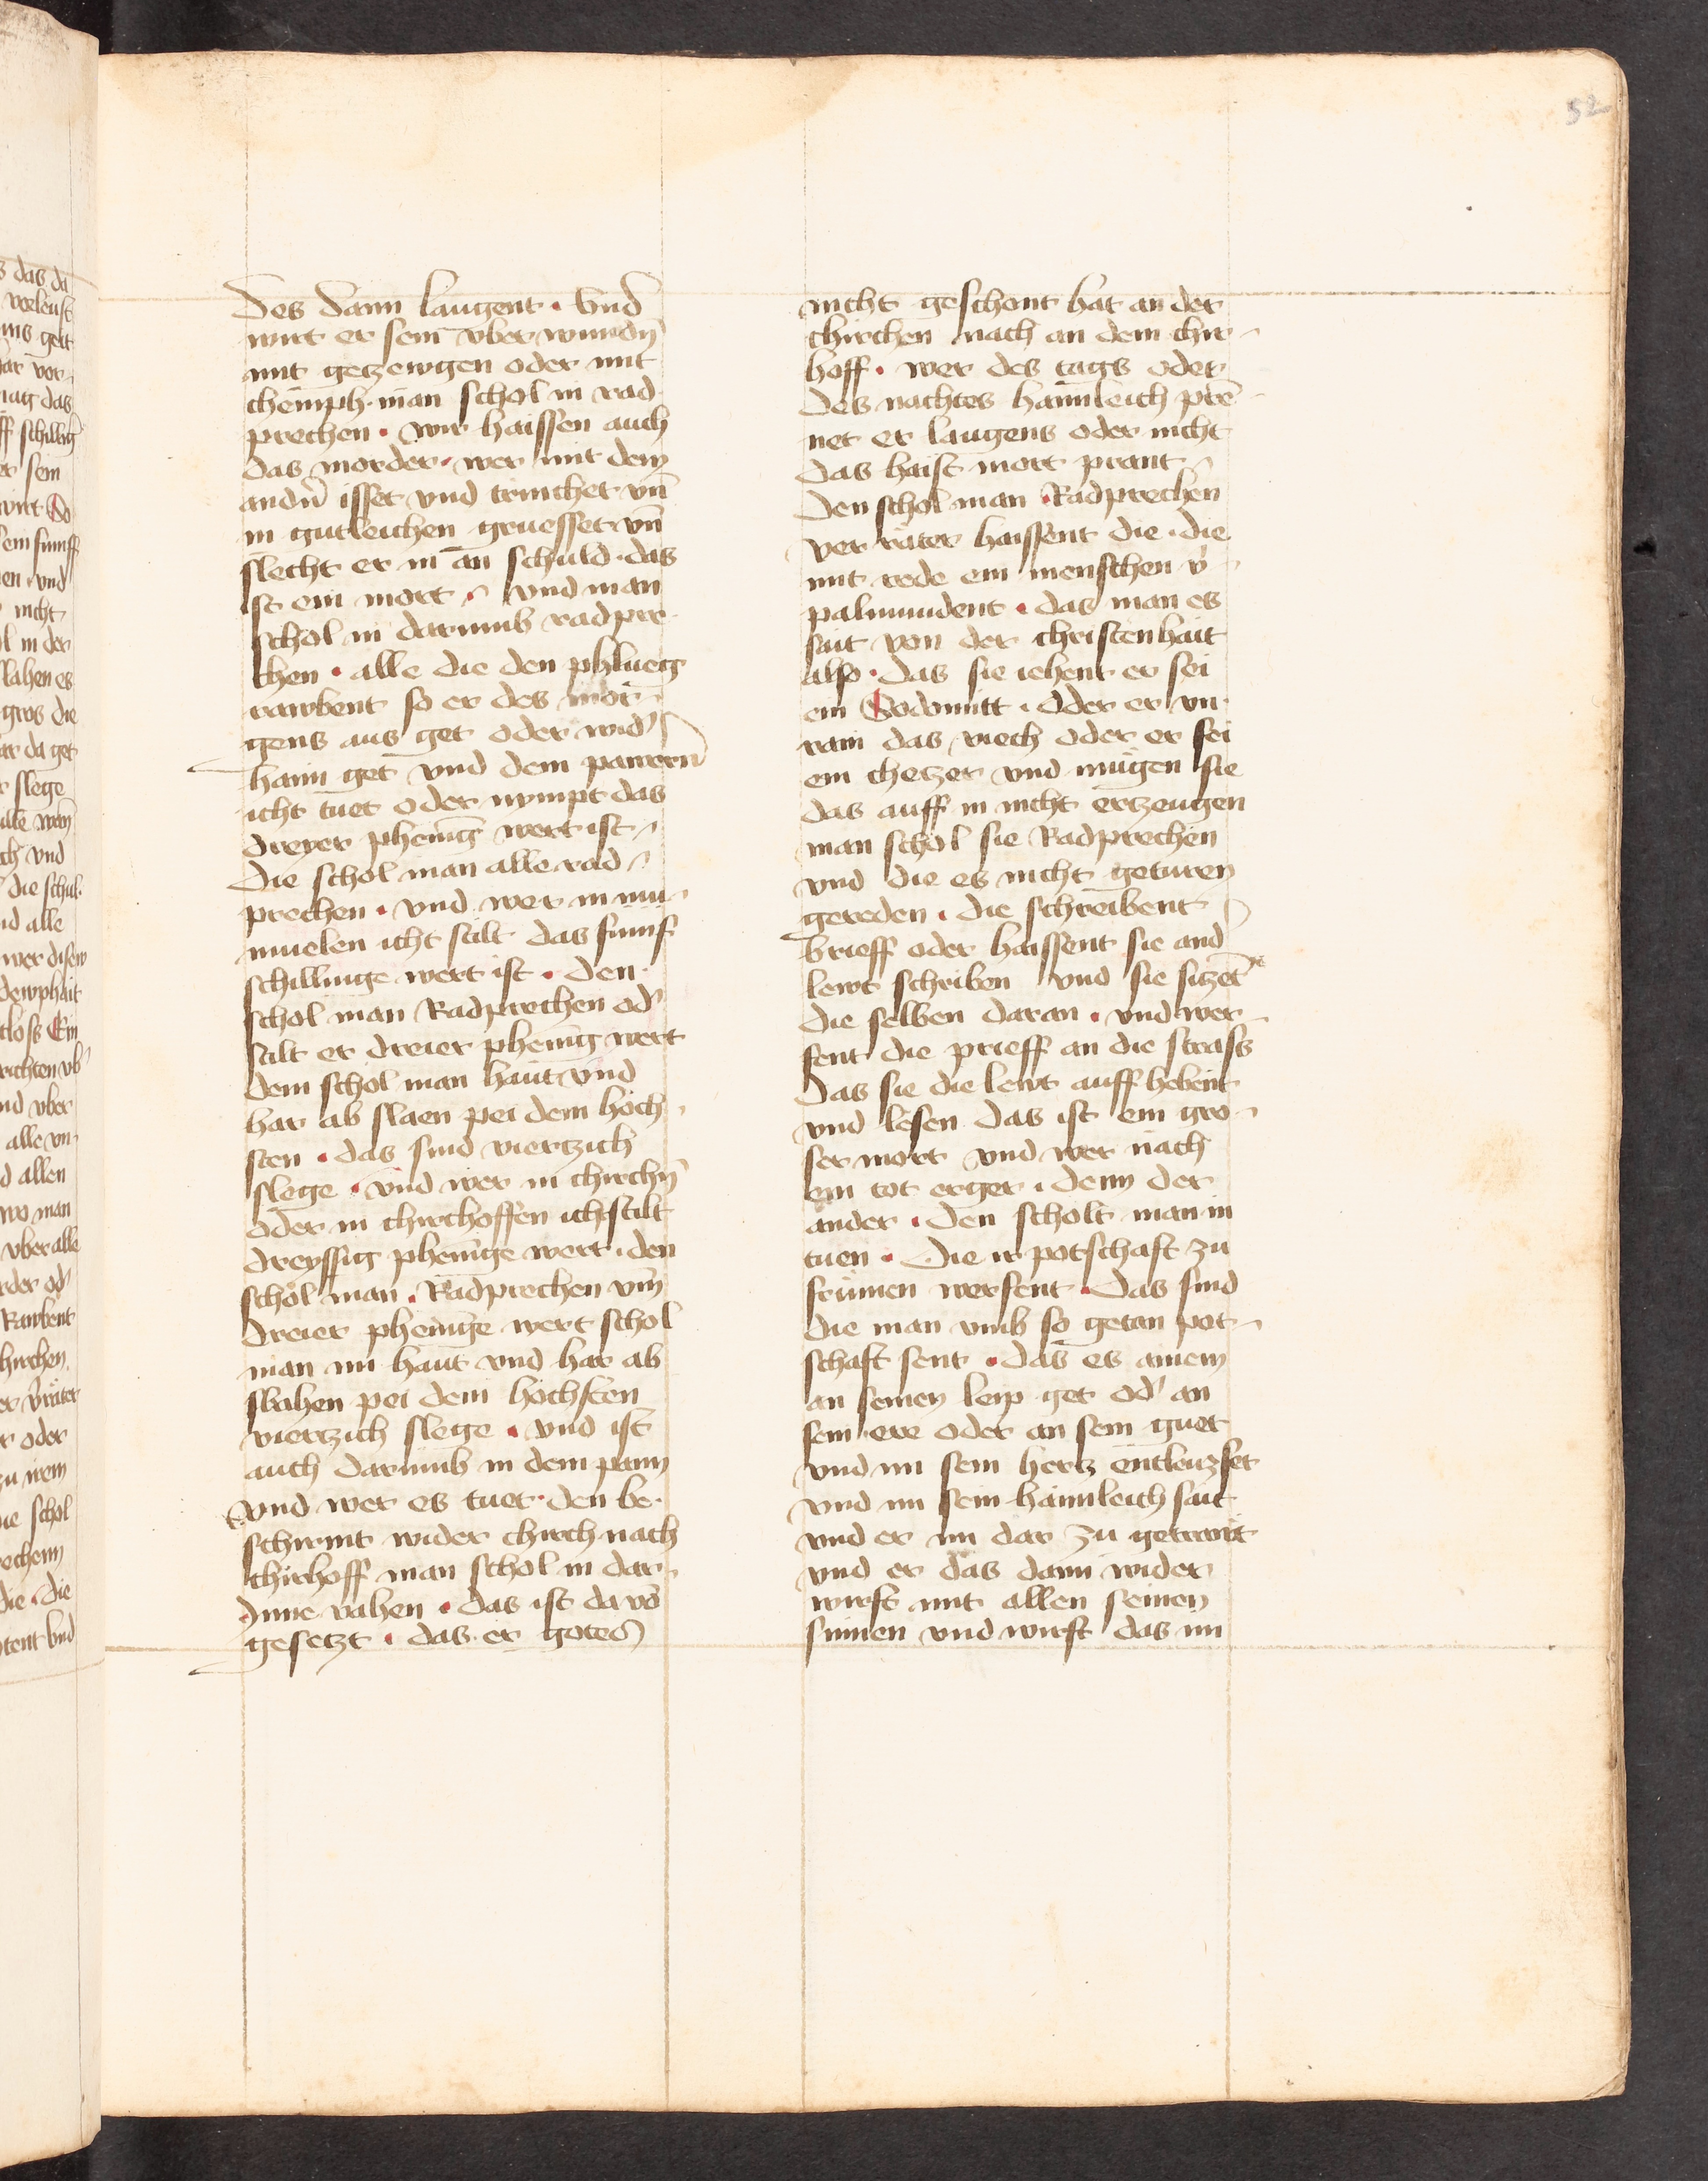 52
des dann laugent · Vnd
wirt er sein vber wundn̄
mit getzewgen oder mit
chemph · man schol in rad
prechen · wir haissen auch
das morder · wer mit dem
andn̄ isset vnd trinchet vn̄
in gutleichen gruesset vn̄
slecht er in an schuld · das
ist ein mort · vnd man
schol in darumb radpre
chen · alle die den phlueg
rawbent so er des mor
gens aus get oder wid᾽
haim get vnd dem pawern
icht tuet oder nympt das
dreyer pheniḡ wert ist
die schol man alle rad
prechen · vnd wer in mu
muelen icht stilt das fumf
schillinge wert ist · den
schol man Radprechen od᾽
stilt er dreier phenīg wert
dem schol man haut vnd
har ab slaen pei dem hoch
sten · das sind viertzich
slege · vnd wer in chirchn̄
oder in chirchoffen icht stilt
dreyssig phenīge wert · den
schol man · Radprechen vm̄
dreier phenīge wert schol
man im haut vnd har ab
slahen pei dem hochsten
viertzich slege · vnd ist
auch darumb in dem pann
vnd wer es tuet · den be
schirmt wider chirch nach
chirhoff man schol in dar
Inne vahen · das ist da vō
gesetzt · das er gotes
nicht geschont hat an der
chirchen nach an dem chir
hoff · wer des tags oder
des nachtes haimleich prē
net er laugens oder nicht
das haist mort prant
den schol man · Radprechen
ver räter haissent die · die
mit rede ein menschen v᾽
palmundent · das man es
sait von der christenhait
also · das sie iehent er sei
ein Sodomitt · oder er vn
rain das viech oder er sei
ein chetzer vnd mügen sie
das auff in nicht ertzeugen
man schol sie Radprechen
vnd die es nicht geturen
gereden · die schreibent
brieff oder haissent sie and
lewt schriben vnd sie sitzēt
die selben daran · vnd wer
fent die prieff an die strass
das sie die lewt auff hebent
vnd lesen das ist ein gro
ser mort vnd wer nach
ein tot erger · denn der
ander · den scholt man in
tuen · die ir potschaft zu
frumen werfent · das sind
die man vmb so getan pot
schaft sent · das es ainem
an seinen leip get od᾽ an
sein ere oder an sein guet
vnd im sein hertz entleuzset
vnd im sein haimleich sait
vnd er im dar zu getrawt
vnd er das dann wider
wirft mit allen seinen
sinnen vnd wirft das im